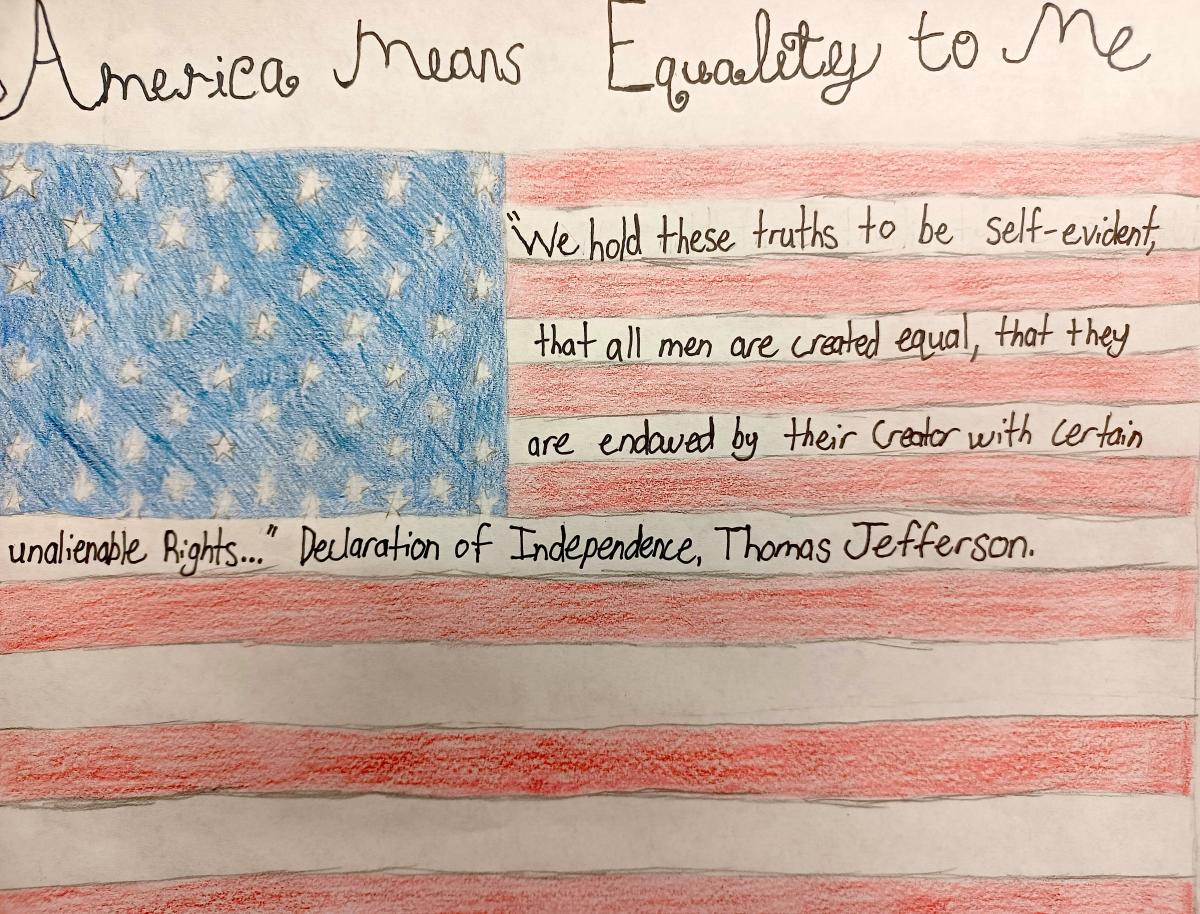 America Means Equality to Me
"We hold these truths to be self-evident,
that all men are created equal, that they
are endowed by their Creator with certain
unalienable Rights..." Declaration of Independence, Thomas Jefferson.